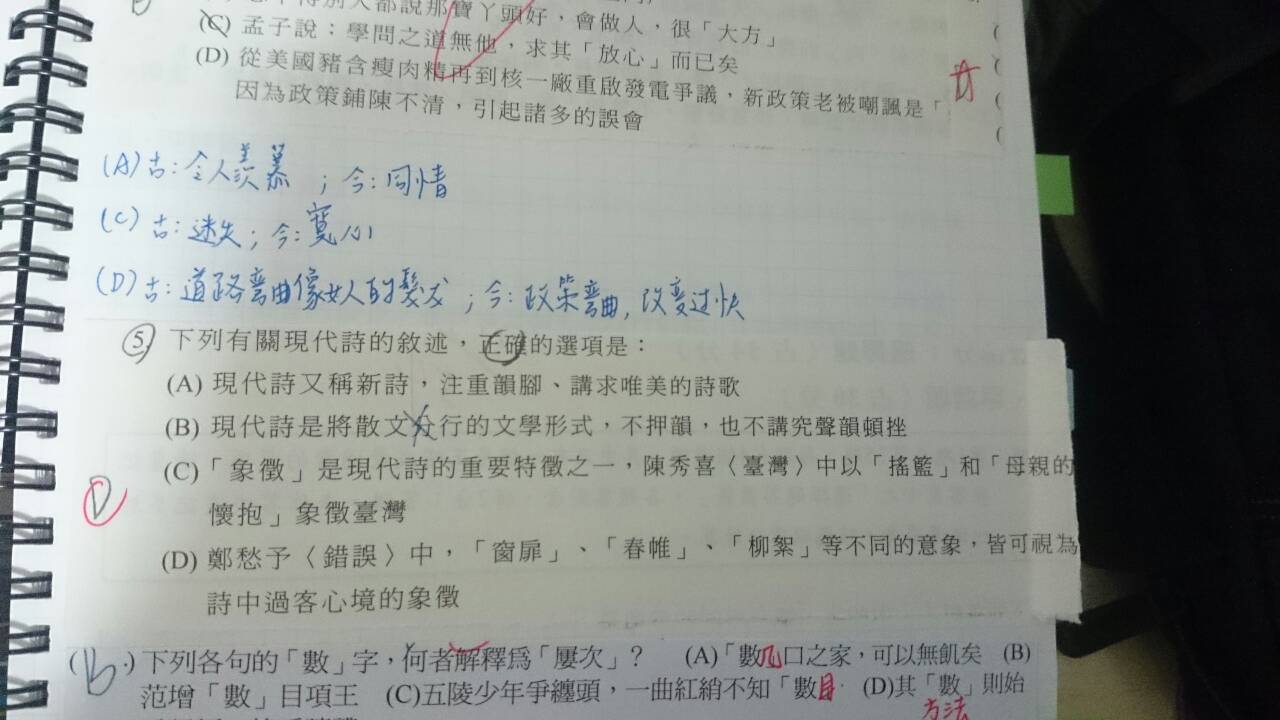 得別人都說那寶丫頭好,會做人,很「大方」
(C) 孟子說:學問之道無他,求其「放心」而已矣
(D) 從美國豬含瘦肉精再到核一廠重啟發電爭議,新政策老被嘲諷是「
因為政策鋪陳不清,引起諸多的誤會
(A) 古:令人羨慕 ; 今:同情
(C) 古:迷失; 今:寬心
(D) 古:道路彎曲像女人的髮 ; 今:政策彎曲,改變过快
5 下列有關現代詩的敘述,正確的選項是:
(A) 現代詩又稱新詩,注重韻腳、講求唯美的詩歌
(B) 現代詩是將散文分行的文學形式,不押韻,也不講究聲韻頓挫
(C)「象徵」是現代詩的重要特徵之一,陳秀喜〈臺灣〉中以「搖籃」和「母親的
懷抱」象徵臺灣
D
(D) 鄭愁予〈錯誤〉中,「窗扉」、「春帷」、「柳絮」等不同的意象,皆可視為
詩中過客心境的象徵
(B) 下列各句的「數」字,何者解釋為「屢次」? (A)「數几口之家,可以無飢矣 (B)
范增「數」目項王 (C)五陵少年爭纏頭,一曲紅綃不知「數目 (D)其「數」則始
方法